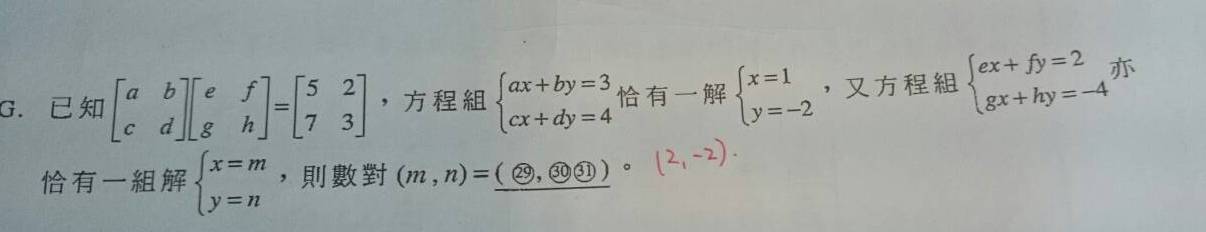 G. 已知[a b c d][e f g h]=[5 2 7 3],方程組{ax+by=3 cx+dy=4恰有一解{x=1 y=-2,又方程組{ex+fy=2 gx+hy=-4亦
恰有一組解{x=m y=n,則數對(m,n)=(㉙,㉚㉛)。 (2,-2).